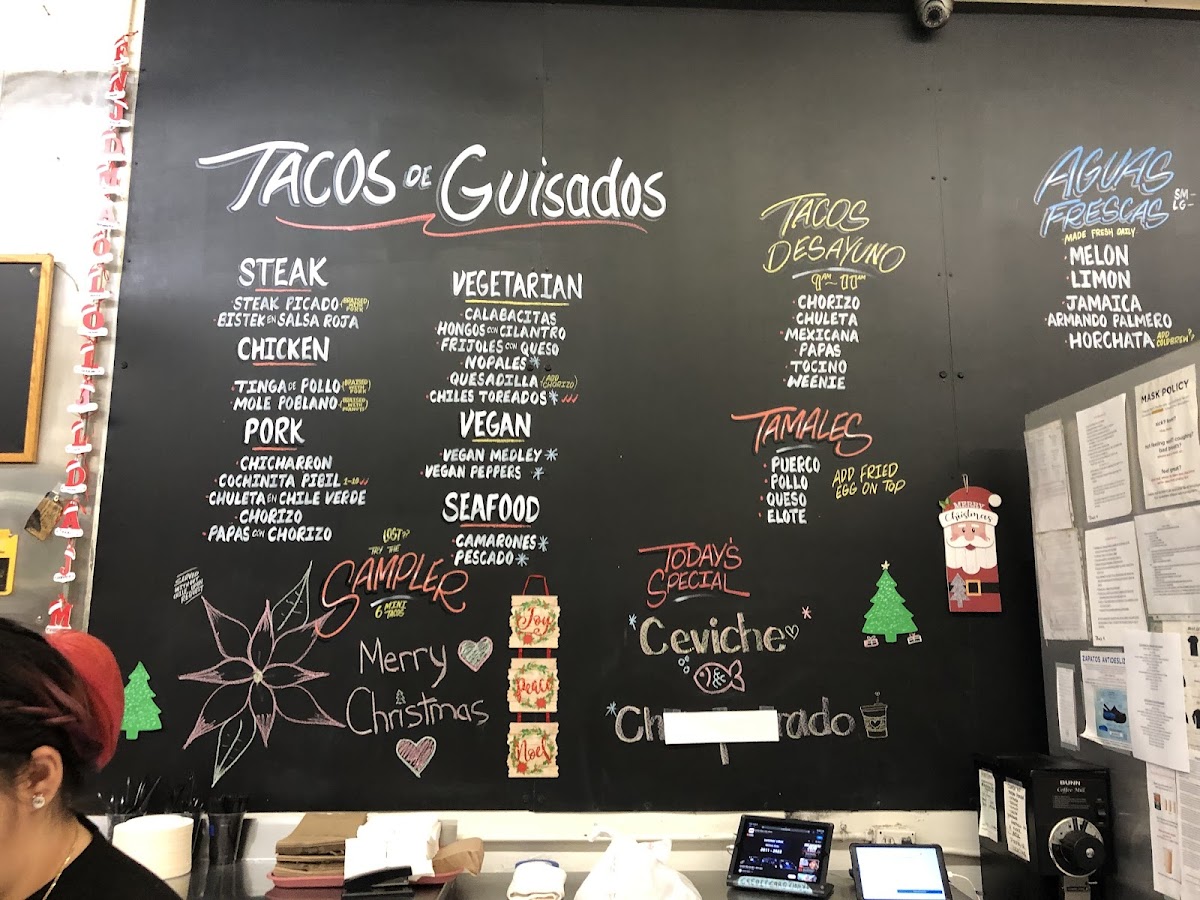 TACOS DE GUISADOS
STEAK
STEAK PICADO (BRAISED WITH PORK)
BISTEK EN SALSA ROJA
CHICKEN
TINGA DE POLLO (BRAISED WITH PORK)
MOLE POBLANO (BRAISED WITH PEANUTS)
PORK
CHICHARRON
COCHINITA PIBIL 1-10
CHULETA EN CHILE VERDE
CHORIZO
PAPAS CON CHORIZO
VEGETARIAN
CALABACITAS
HONGOS CON CILANTRO
FRIJOLES CON QUESO
NOPALES*
QUESADILLA (ADD CHORIZO)
CHILES TOREADOS*
VEGAN
VEGAN MEDLEY*
VEGAN PEPPERS *
SEAFOOD
CAMARONES*
PESCADO*
LOST??
TRY THE
SAMPLER
6 MINI
TACOS
Merry
Christmas
Joy
Peace
Noel
TACOS
DESAYUNO
9AM~11AM
CHORIZO
CHULETA
MEXICANA
PAPAS
TOCINO
WEENIE
TAMALES
PUERCO
POLLO
QUESO
ELOTE
ADD FRIED
EGG ON TOP
TODAY'S
SPECIAL
Ceviche
Ch
rado
AGUAS
FRESCAS
SM-
LG-
MADE FRESH DAILY
MELON
LIMON
JAMAICA
ARMANDO PALMERO
HORCHATA ADD COLDBREW?
MERRY
Christmas
MASK POLICY
ZAPATOS ANTIDESLIZ
BUNN
Coffee Mill